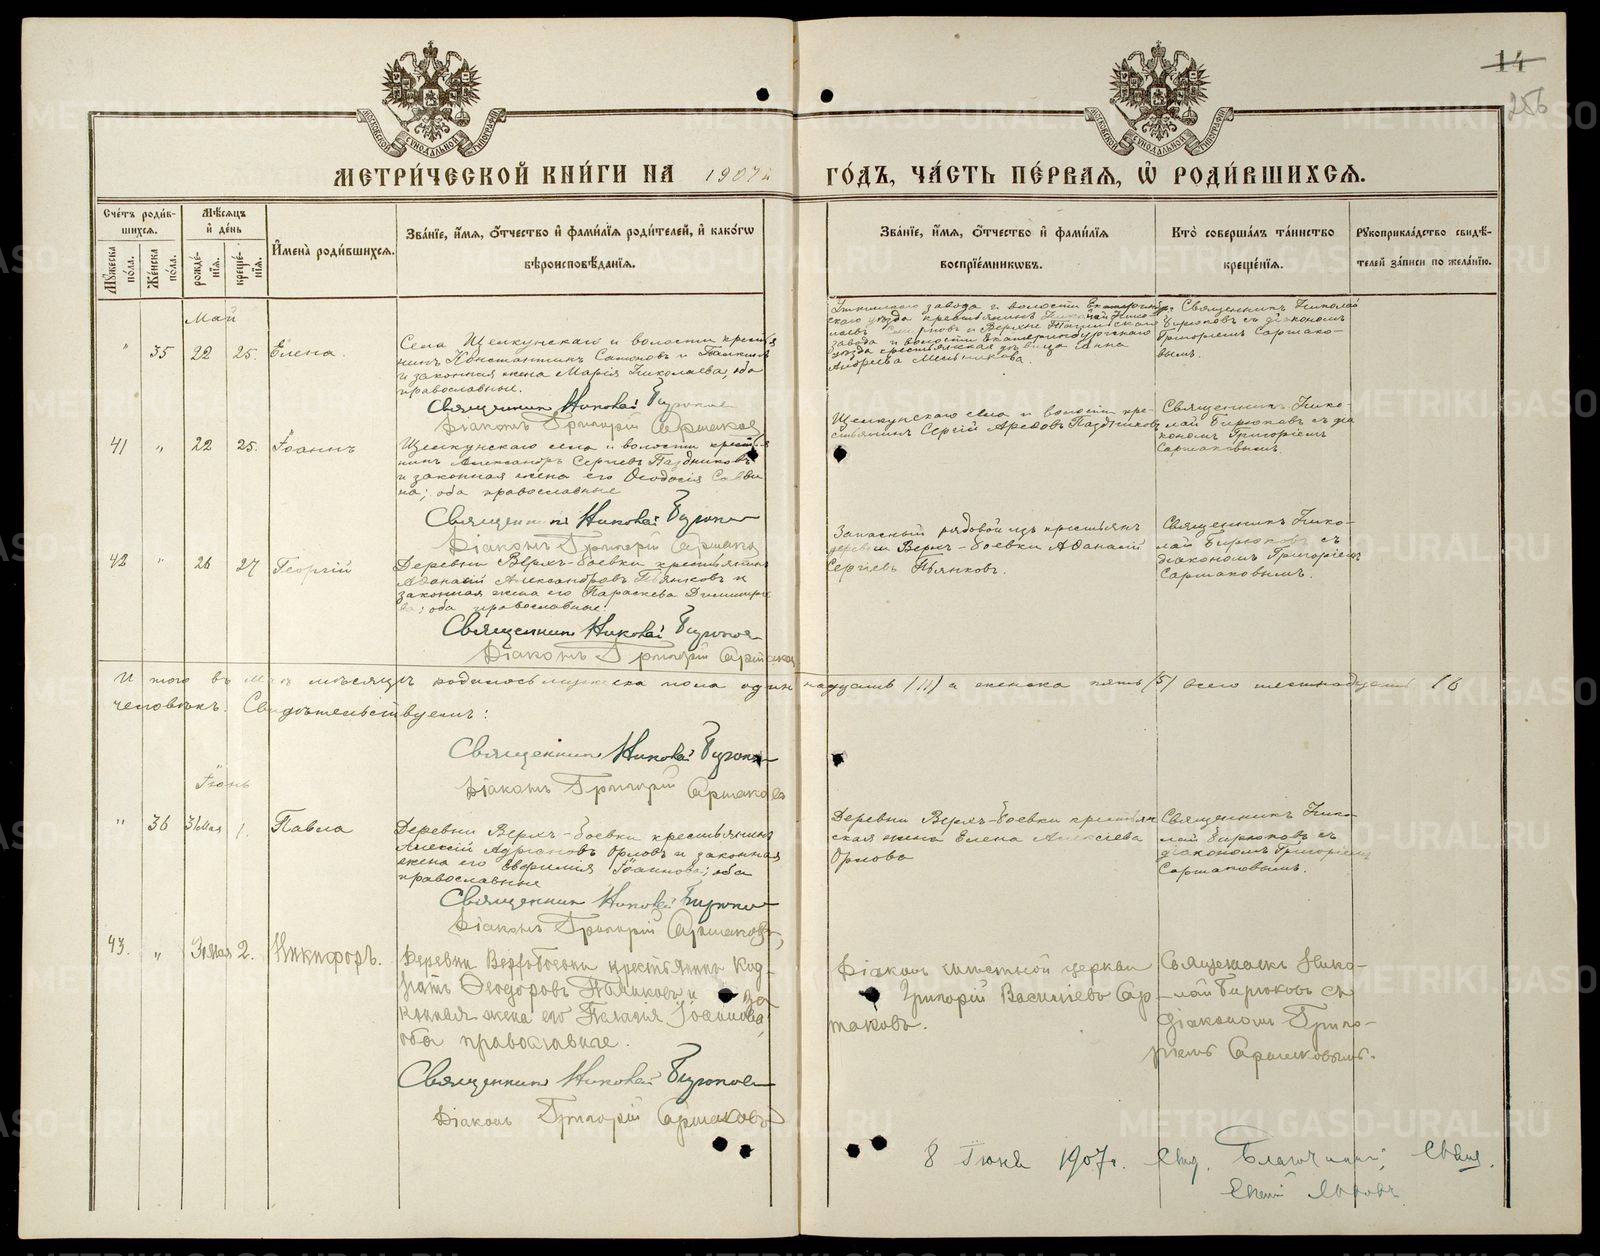 14
256
МЕТРИ́ЧЕСКОЙ КНИ́ГИ НА 1907й ГО́ДЪ, ЧА́СТЬ ПЕ́РВАЯ, Ѡ҆ РОДИ́ВШИХСЯ.
Сче́тъ роди́вшихся.
Мѣ́сяцъ и҆ де́нь
Мꙋ́жеска по́ла.
Же́нска по́ла.
рожде́нїѧ.
креще́нїѧ.
И҆мена̀ роди́вшихсѧ.
Зва́нїе, и҆́мѧ, ѻ҆́тчество и҆ фами́лїѧ роди́телей, и҆ како́гѡ вѣроисповѣ́данїѧ.
Зва́нїе, и҆́мѧ, ѻ҆́тчество и҆ фами́лїѧ воспрїе́мникѡвъ.
Кто̀ соверша́лъ та́инство креще́нїѧ.
Рꙋкоприкла́дство свидѣ́телей за́писи по жела́нїю.
Май
" 35 22 25. Елена.
Села Щелкунскаго и волости крестья
нинъ Константинъ
и законная жена Марія Николаева, оба
православные.
Священникъ Николай Бирюков
Діаконъ Григорій Сартаков
завода и волости
уѣзда крестьянинъ
завода и волости Екатеринбургскаго
уѣзда крестьянская дѣвица Анна
Андреева Мельникова.
Священникъ Николай
Бирюковъ съ діакономъ
Григоріемъ Сартако-
вымъ.
41 " 22 25. Іоаннъ
Щелкунскаго села и волости крестья
нинъ Александръ Сергіевъ Паздниковъ
и законная жена его Ѳеодосія Савви
на; оба православные
Священникъ Николай Бирюков
Діаконъ Григорій Сартаков
Щелкунскаго села и волости кре-
стьянинъ Сергій Паздников
Священникъ Нико-
лай Бирюковъ съ діа
кономъ Григоріемъ
Сартаковымъ
42 " 26 27 Георгій
Деревни Верхъ-Боевки крестьянинъ
Аѳанасій Александровъ Пьянковъ и
законная жена его Параскева Димитріе
ва; оба православные.
Священникъ Николай Бирюков
Діаконъ Григорій Сартаков
Запасный рядовой изъ крестьянъ
деревни Верхъ-Боевки Аѳанасій
Сергіевъ Пьянковъ.
Священникъ Нико-
лай Бирюковъ съ
діакономъ Григоріемъ
Сартаковымъ.
И того въ Маѣ мѣсяцѣ родилось мужеска пола одиннадцать (11) и женска пять (5) всего шестнадцать 16
человѣкъ. Свидѣтельствуемъ:
Священникъ Николай Бирюков
Діаконъ Григорій Сартаковъ
Іюнь
" 36 31 Мая 1. Павла
Деревни Верхъ-Боевки крестьянинъ
Алексій Адріановъ Орловъ и законная
жена его Евфимія Іоаннова; оба
православные
Священникъ Николай Бирюков
Діаконъ Григорій Сартаковъ
Деревни Верхъ-Боевки крестьян
ская жена Елена Алексіева
Орлова
Священникъ Нико-
лай Бирюковъ съ
діакономъ Григоріемъ
Сартаковымъ.
43. " 31 Мая 2. Никифоръ.
Деревни Верхобоевки крестьянинъ Код-
ратъ Ѳеодоровъ и за
конная жена его Пелагія Іоаннова,
оба православные.
Священникъ Николай Бирюков
Діаконъ Григорій Сартаковъ
Діаконъ церкви
Григорій Васильевъ Сар
таковъ.
Священникъ Нико-
лай Бирюковъ съ
діакономъ Григо-
ріемъ Сартаковымъ.
8 Іюня 1907 г. Благочинный,
METRIKI.GASO-URAL.RU